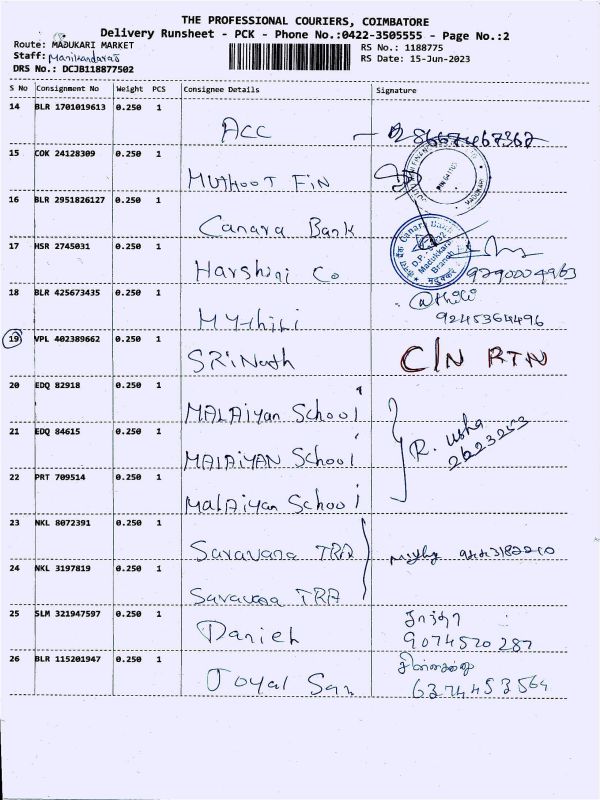 THE PROFESSIONAL COURIERS, COIMBATORE
Delivery Runsheet - PCK - Phone No.:0422-3505555 - Page No.:2
Route: MADUKARI MARKET RS No.: 1188775
Staff: RS Date: 15-Jun-2023
DRS No.: DCJB118877502
S No Consignment No Weight PCS Consignee Details Signature
14 BLR 1701019613 0.250 1
ACC
15 COK 24128309 0.250 1
MUTHOOT FIN
16 BLR 2951826127 0.250 1
Canara Bank
17 HSR 2745031 0.250 1
Harshini Co
18 BLR 425673435 0.250 1
Mythili 9245364496
19 VPL 402389662 0.250 1
SRiNath C/N RTN
20 EDQ 82918 0.250 1
MALAiyan School
21 EDQ 84615 0.250 1
MALAiYAN School R. Usha
22 PRT 709514 0.250 1
MalAiyan School
23 NKL 8072391 0.250 1
Saravana TRA
24 NKL 3197819 0.250 1
Saravana TRA
25 SLM 321947597 0.250 1
Daniel 9074520287
26 BLR 115201947 0.250 1
Joyal San 6374453564